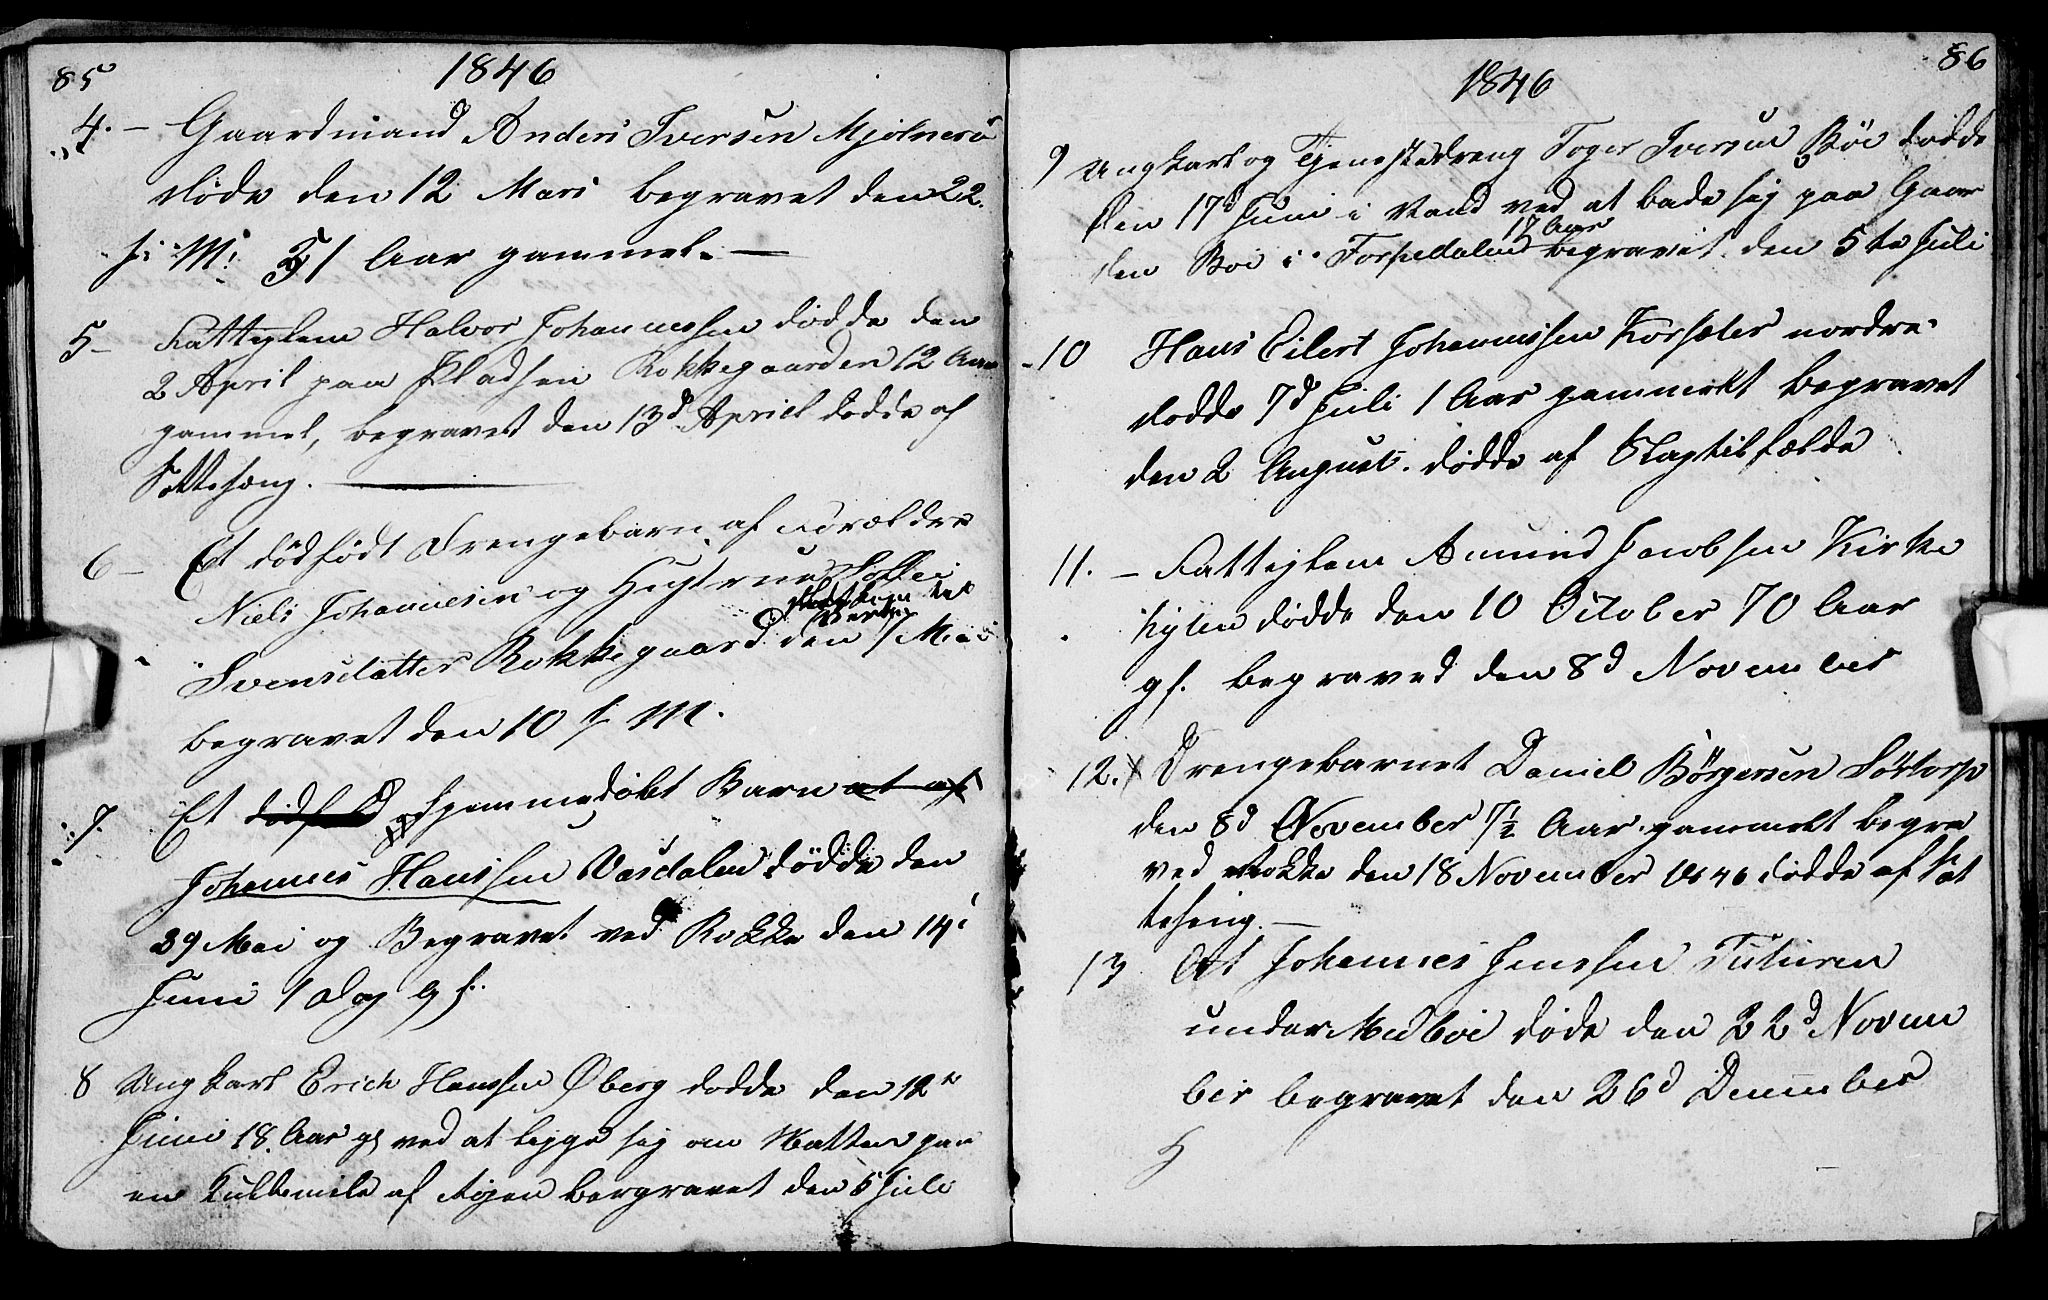 85
1846
4. – Gaardmand Anders Iversen Mjølnerö
döde den 12 Mars begravet den 22.
s: M: 51 Aar gammel. —
5 – Fattiglem Halvor Johannessen dödde den
2 April paa Pladsen Rokkegaarden 12 Aar
gammel, begravet den 13d April dödde af
Sottesæng. —
6 – Et dödfödt Drengebarn af Foræeldre
Niels Johannesen og Hustrue
Svensdatter Rokkegaard den 7 Mai
begravet den 10 s. M.
7. Et dödfød hjemmedöbt Barn at af
Johannes Hanssen Vasdalen dödde den
29 Mai og Begravet ved Rokke den 14i
Juni 1 Dag gl.
8 Ung Karl Erich Hanssen Øberg dodde den 12te
Juni 18. Aar gl ved at legge sig om Natten paa
en Kullemile af Røgen bergravet den 5 Juli
86
1846
9 Ungkarl og Tjenestedreng Toger Iversen Böe dödde
den 17d Juni i Vand ved at bade sig paa Gaar
17 Aar
den Boe i Torpedalen begravet den 5te Juli
10 Hans Eilert Johannessen Korsæter nordre
dodde 7d Juli 1 Aar gammelt begravet
den 2 August. dödde af Slagtilfælde
11. – Fattiglem Amund Jacobsen Kirke
hylen dödde den 10 October 70 Aar
gl. begraved den 8d November
12. x Drengebarnet Daniel Börgersen Sörtorp
den 8d November 7½ Aar gammelt begra
ved Rokke den 18 November 1846 dödde af Sot
teseng –
13 At Johannes Jenssen
under döde den 22d Novem
ber begravet den 26d December